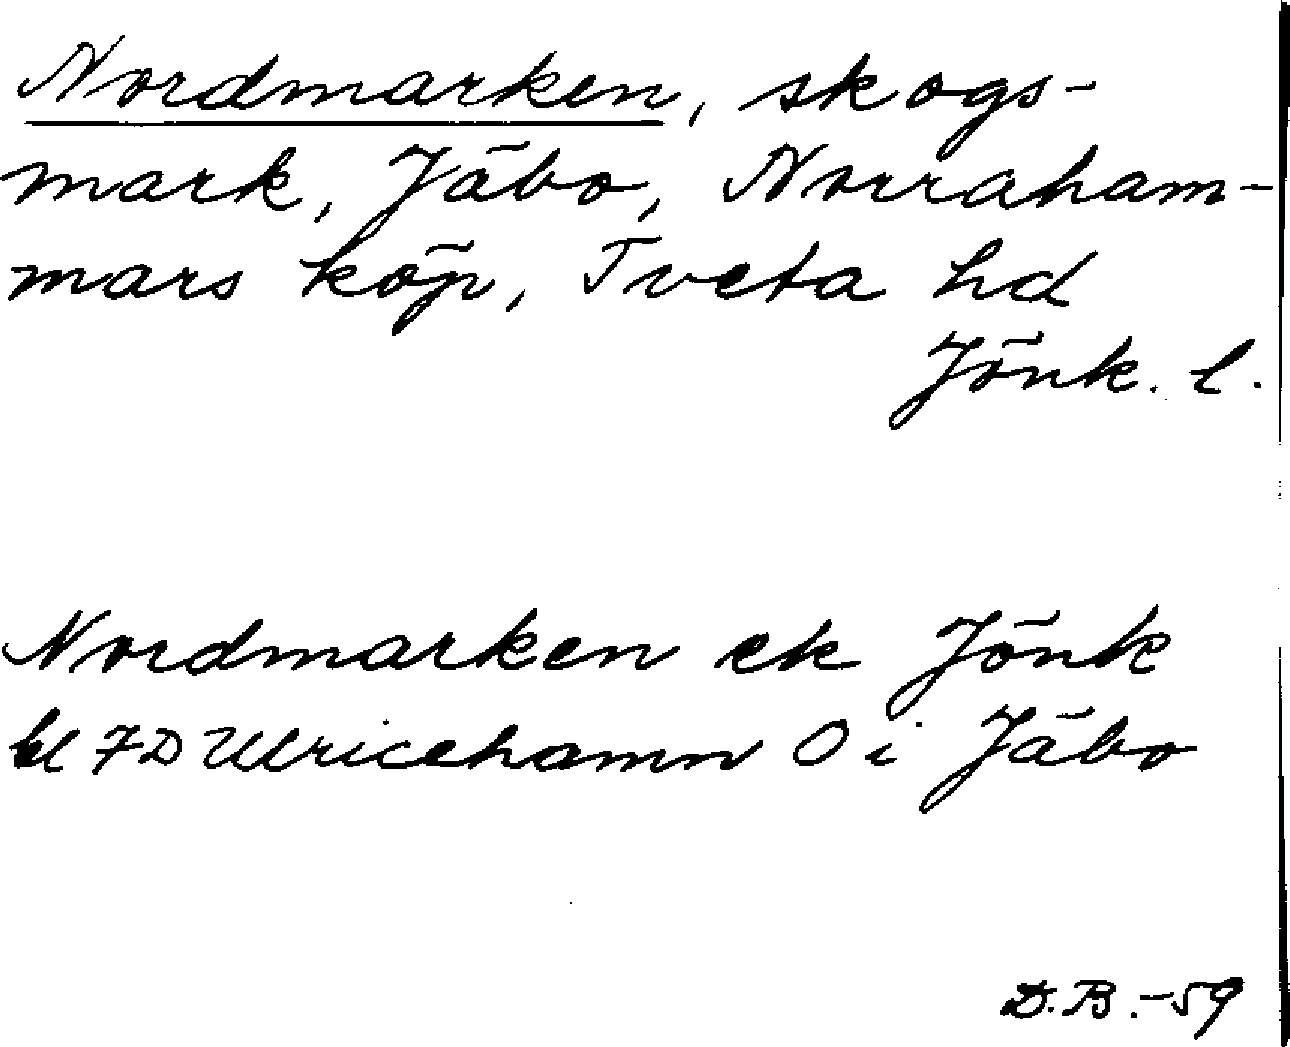 Nordmarken, skogs-
mark, Jäbo, Norraham-
mars köp, Tveta hd
Jönk. l.
Nordmarken ek Jönk
bl 7D Ulricehamn O i Jäbo
D.B.-59